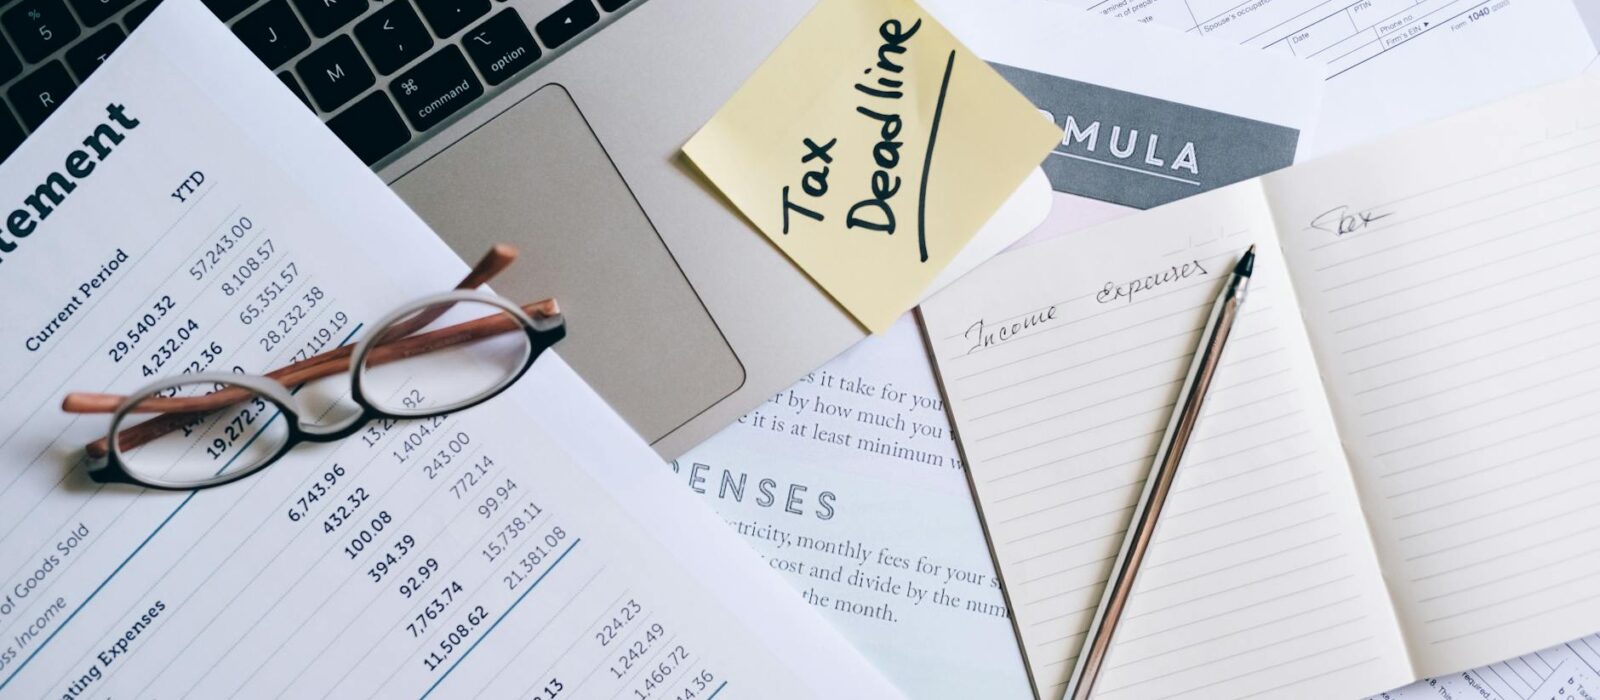 %
5
R
T
J
K
L
M
<
,
>
.
⌘
command
⌥
option
◀
tement
YTD
Current Period
29,540.32 57,243.00
4,232.04 8,108.57
65,351.57
28,232.38
37,119.19
19,272.3
of Goods Sold
oss Income
ating Expenses
6,743.96
432.32 1,404.2
100.08 243.00
394.39 772.14
92.99 99.94
7,763.74 15,738.11
11,508.62 21,381.08
224.23
1,242.49
1,466.72
44.36
.13
Tax
Deadline
OMULA
Spouse's occupation
Date
PTIN
Phone no.
Firm's EIN ▶
Form 1040 (2020)
of prepare
Date
s it take for you
r by how much you
e it is at least minimum w
ENSES
ctricity, monthly fees for your s
cost and divide by the num
the month.
Income expenses
Tax
required,